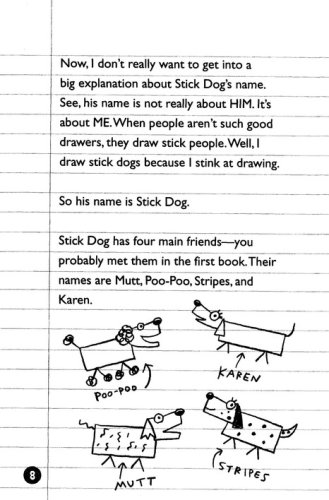 Now, I don't really want to get into a
big explanation about Stick Dog's name.
See, his name is not really about HIM. It's
about ME. When people aren't such good
drawers, they draw stick people. Well, I
draw stick dogs because I stink at drawing.
So his name is Stick Dog.
Stick Dog has four main friends—you
probably met them in the first book. Their
names are Mutt, Poo-Poo, Stripes, and
Karen.
POO-POO
KAREN
MUTT
STRIPES
8